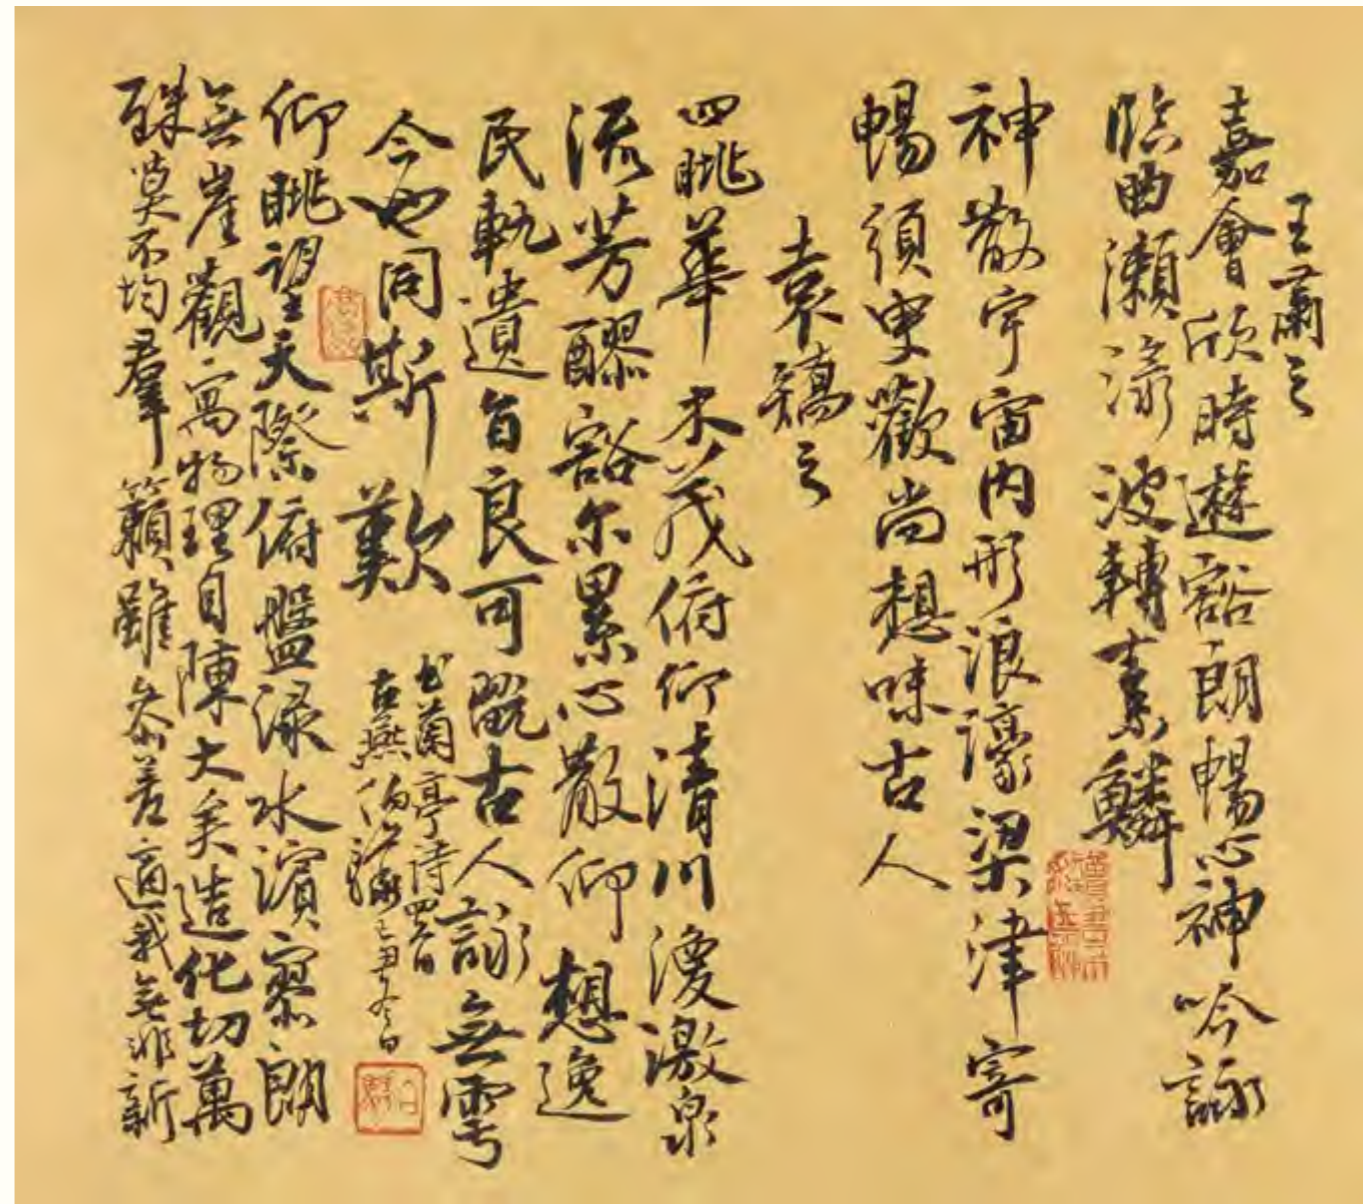 王肅之
嘉會欣時遊豁朗暢心神吟詠
臨曲瀨淥波轉素鱗
神散宇宙內形浪濠梁津寄
暢須臾歡尚想味古人
袁矯之
四眺華木茂俯仰清川漫激泉
流芳醪豁尔累心散仰想逸
民軌遺旨良可翫古人詠無雩
今也同斯歎
书蘭亭詩四首
古燕
己丑冬日
仰眺望天際俯盤淥水濱寥朗
無崖觀寓物理自陳大矣造化切萬
殊莫不均羣籟雖參差適我無非新